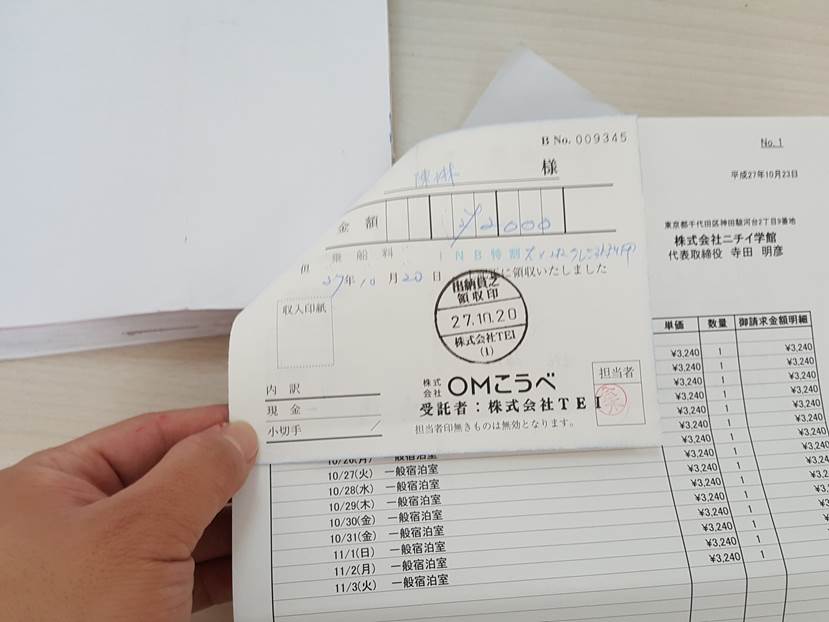 B No. 009345
陳琳 様
金額 ¥2000
乗船料 INB特割
但
27年10月20日 正に領収いたしました
収入印紙
出納員之
領収印
27.10.20
株式会社TEI
(1)
内訳
現金
小切手
株式会社 OMこうべ
受託者:株式会社TEI
担当者
担当者印無きものは無効となります。
No.1
平成27年10月23日
東京都千代田区神田駿河台2丁目9番地
株式会社ニチイ学館
代表取締役 寺田 明彦
単価 数量 御請求金額明細
¥3,240 1 ¥3,240
¥3,240 1 ¥3,240
¥3,240 1 ¥3,240
¥3,240 1 ¥3,240
¥3,240 1 ¥3,240
¥3,240 1 ¥3,240
¥3,240 1 ¥3,240
10/26(月) 一般宿泊室 ¥3,240 1
10/27(火) 一般宿泊室 ¥3,240 1
10/28(水) 一般宿泊室 ¥3,240 1
10/29(木) 一般宿泊室 ¥3,240 1
10/30(金) 一般宿泊室 ¥3,240 1
10/31(金) 一般宿泊室 ¥3,240 1
11/1(日) 一般宿泊室 ¥3,240 1
11/2(月) 一般宿泊室 ¥3,240 1
11/3(火) 一般宿泊室